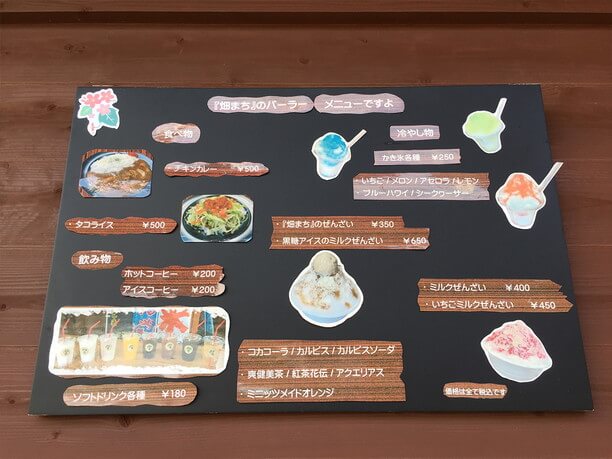 『畑まち』のパーラー　メニューですよ
食べ物
チキンカレー　¥500
・タコライス　¥500
飲み物
ホットコーヒー　¥200
アイスコーヒー　¥200
ソフトドリンク各種　¥180
冷やし物
かき氷各種　¥250
・いちご / メロン / アセロラ / レモン
・ブルーハワイ / シークヮーサー
・『畑まち』のぜんざい　¥350
・黒糖アイスのミルクぜんざい　¥650
・ミルクぜんざい　¥400
・いちごミルクぜんざい　¥450
・コカコーラ / カルピス / カルピスソーダ
・爽健美茶 / 紅茶花伝 / アクエリアス
・ミニッツメイドオレンジ
価格は全て税込です